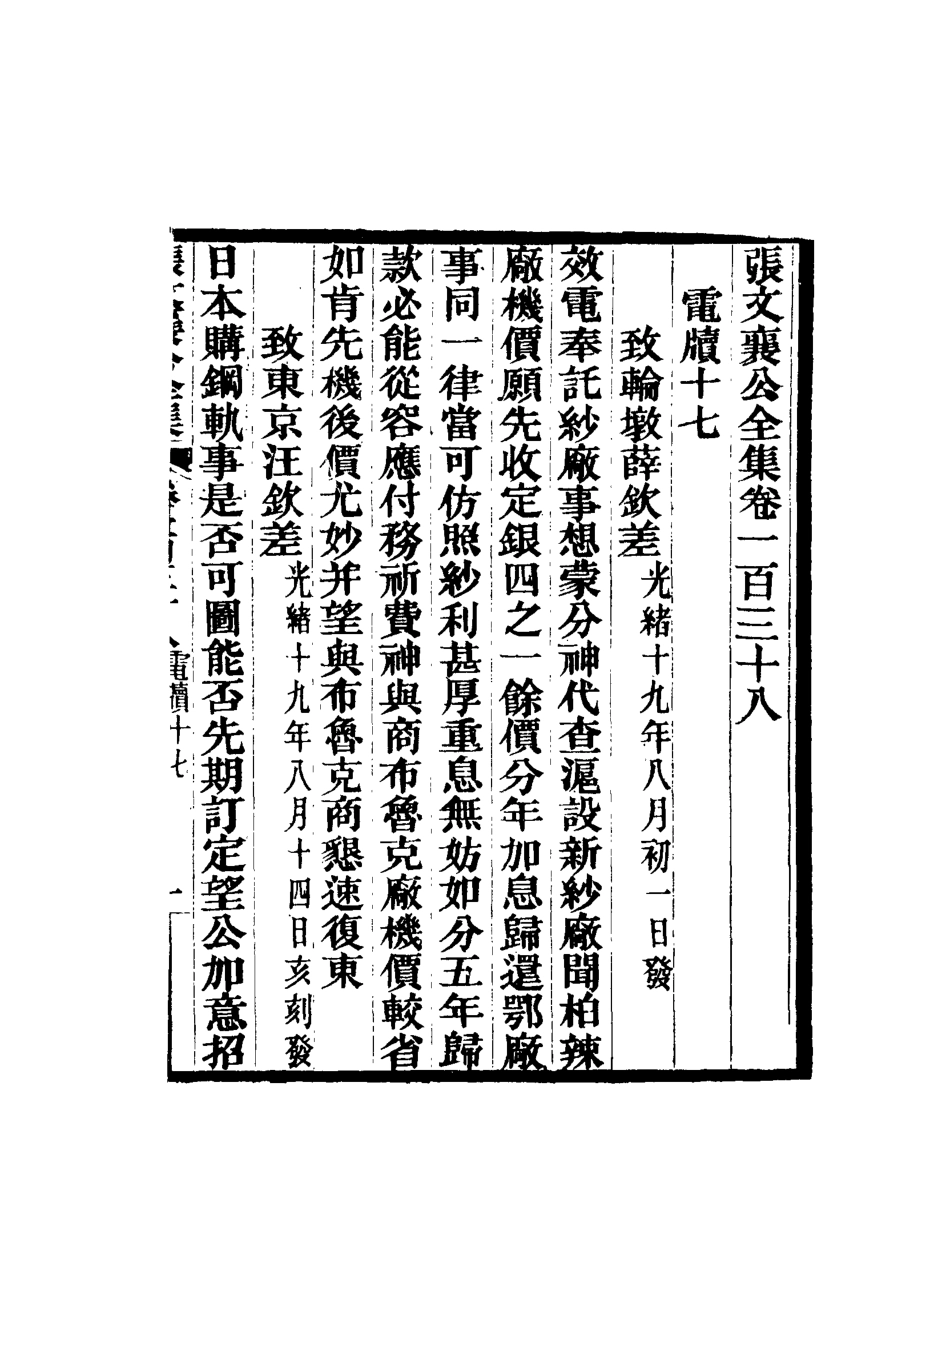 張文襄公全集卷一百三十八
電牘十七
致輪墩薛欽差光緒十九年八月初一日發
效電奉託紗廠事想蒙分神代查滬設新紗廠聞柏辣
廠機價願先收定銀四之一餘價分年加息歸還鄂廠
事同一律當可仿照紗利甚厚重息無妨如分五年歸
款必能從容應付務祈費神與商布魯克廠機價較省
如肯先機後價尤妙并望與布魯克商懇速復東
致東京汪欽差光緒十九年八月十四日亥刻發
日本購鋼軌事是否可圖能否先期訂定望公加意招
電牘十七
一